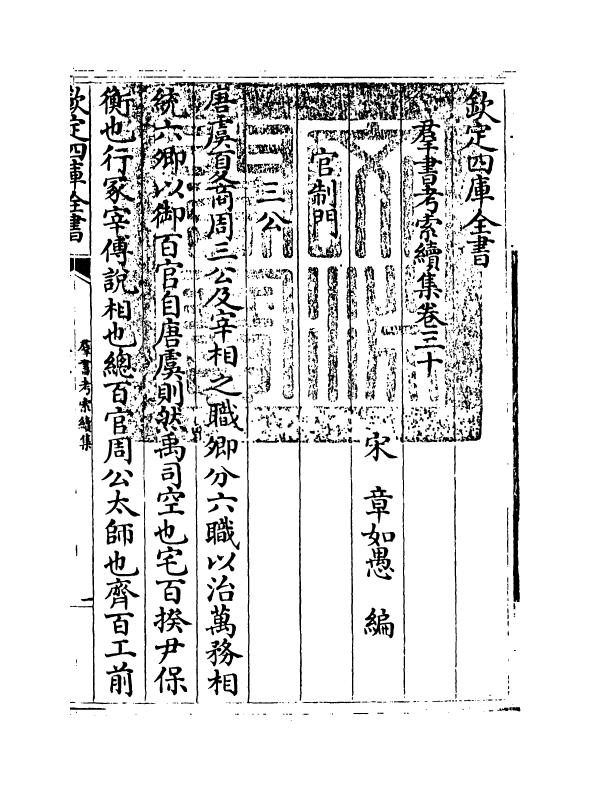 欽定四庫全書
羣書考索續集卷三十
宋　章如愚　編
官制門
三公
唐虞夏商周三公及宰相之職卿分六職以治萬務相
統六卿以御百官自唐虞則然禹司空也宅百揆尹保
衡也行冢宰傅說相也總百官周公太師也齊百工前
欽定四庫全書
羣書考索續集